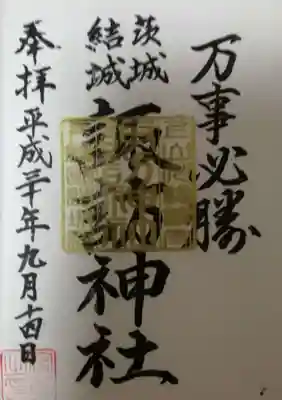 万事必勝
茨城
結城
諏訪神社
奉拝 平成三十年九月十四日